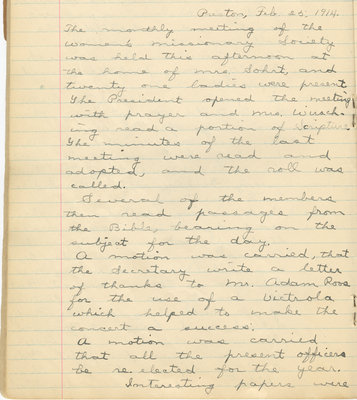 Preston, Feb. 25, 1914.
The monthly meeting of the
Women's missionary Society
was held this afternoon at
the home of Mrs. Sohrt, and
twenty one ladies were present.
The President opened the meeting
with prayer and Mrs.
ing read a portion of Scripture.
The minutes of the last
meeting were read and
adopted, and the roll was
called.
Several of the members
then read passages from
the Bible, bearing on the
subject for the day.
A motion was carried, that
the Secretary write a letter
of thanks to Mr. Adam Ross
for the use of a Victrola
which helped to make the
concert a success.
A motion was carried
that all the present officers
be re. elected for the year.
Interesting papers were